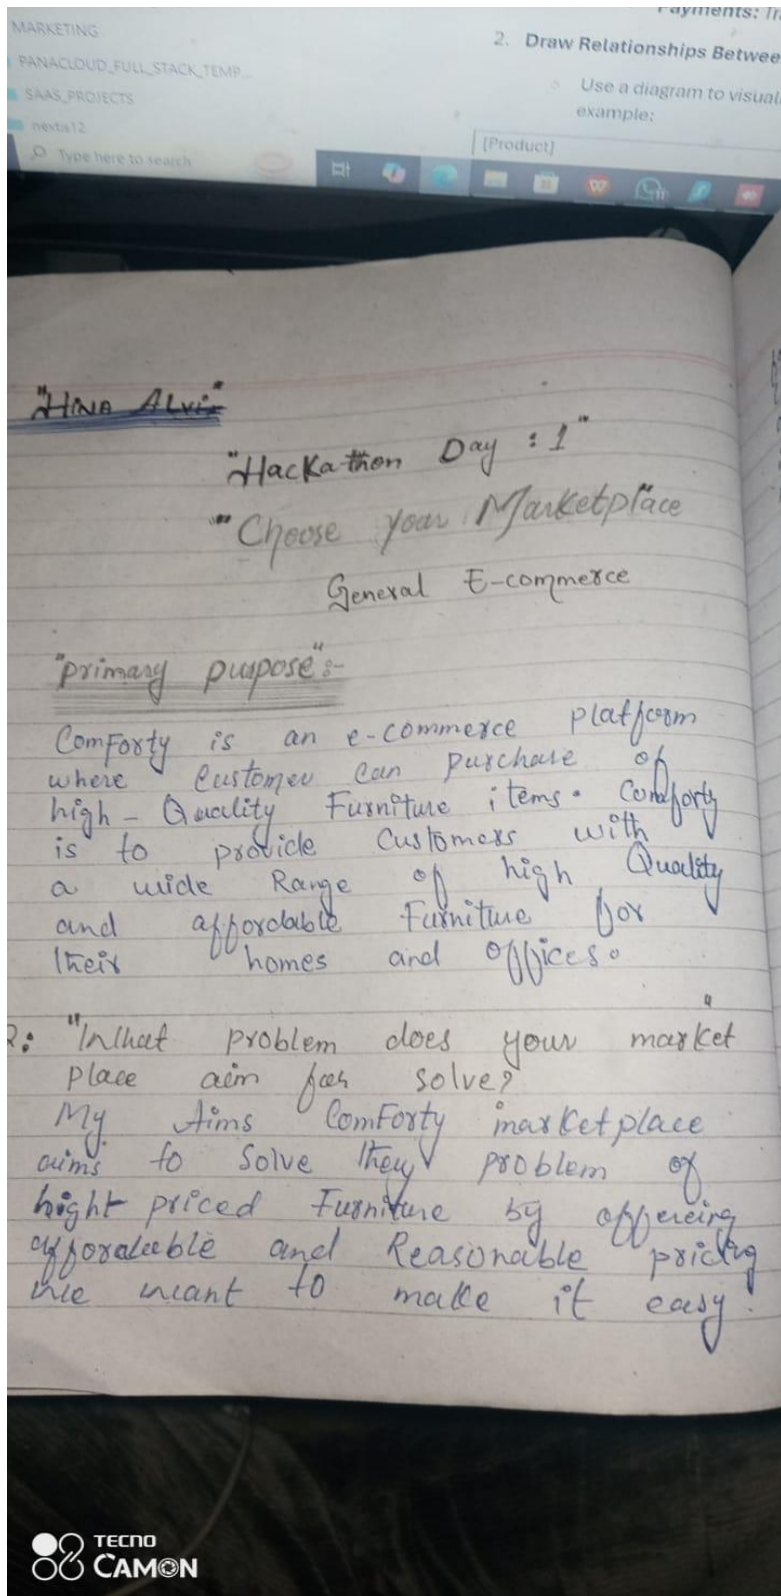 MARKETING
PANACLOUD_FULL_STACK_TEMP...
SAAS_PROJECTS
nextjs12
Type here to search
Payments: Tr
2. Draw Relationships Betwee
Use a diagram to visuali
example:
[Product]
"HINA ALVI"
"Hackathon Day : 1"
"Choose your Marketplace
General E-commerce
"primary purpose":-
ComForty is an e-commerce platform
where Customer can purchase of
high-Quality Furniture items. Comforty
is to provide Customers with
a wide Range of high Quality
and affordable Furniture for
their homes and offices.
2: "What problem does your market"
place aim for solve?
My Aims ComForty marketplace
aims to Solve they problem of
hight priced Furniture by offereing
affordable and Reasonable pricing
we want to make it easy.
TECNO
CAMON